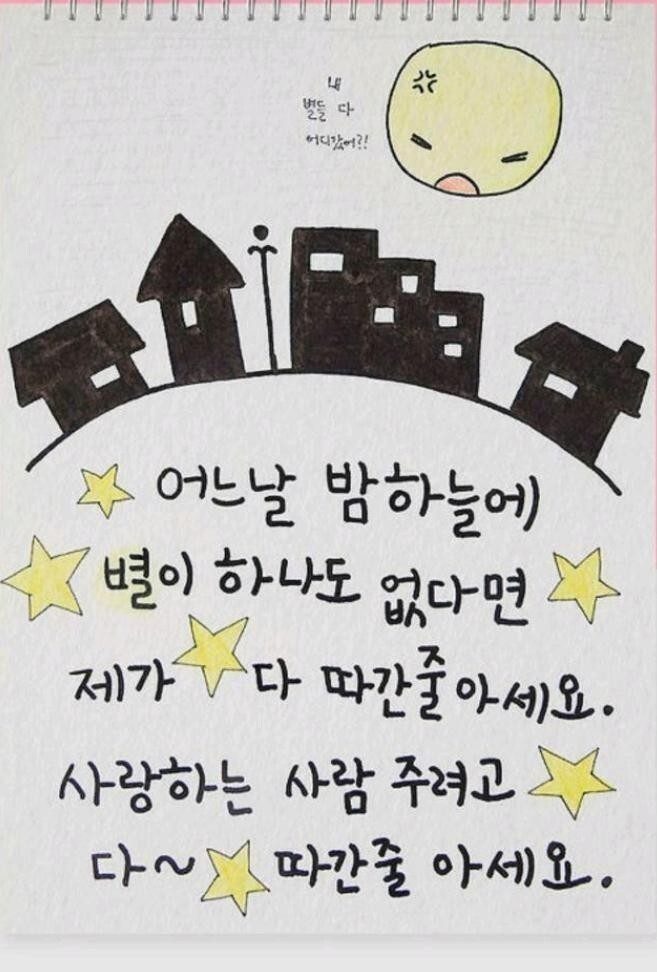 내
별들 다
어디갔어?!
어느날 밤하늘에
별이 하나도 없다면
제가 다 따간줄 아세요.
사랑하는 사람 주려고
다~ 따간줄 아세요.